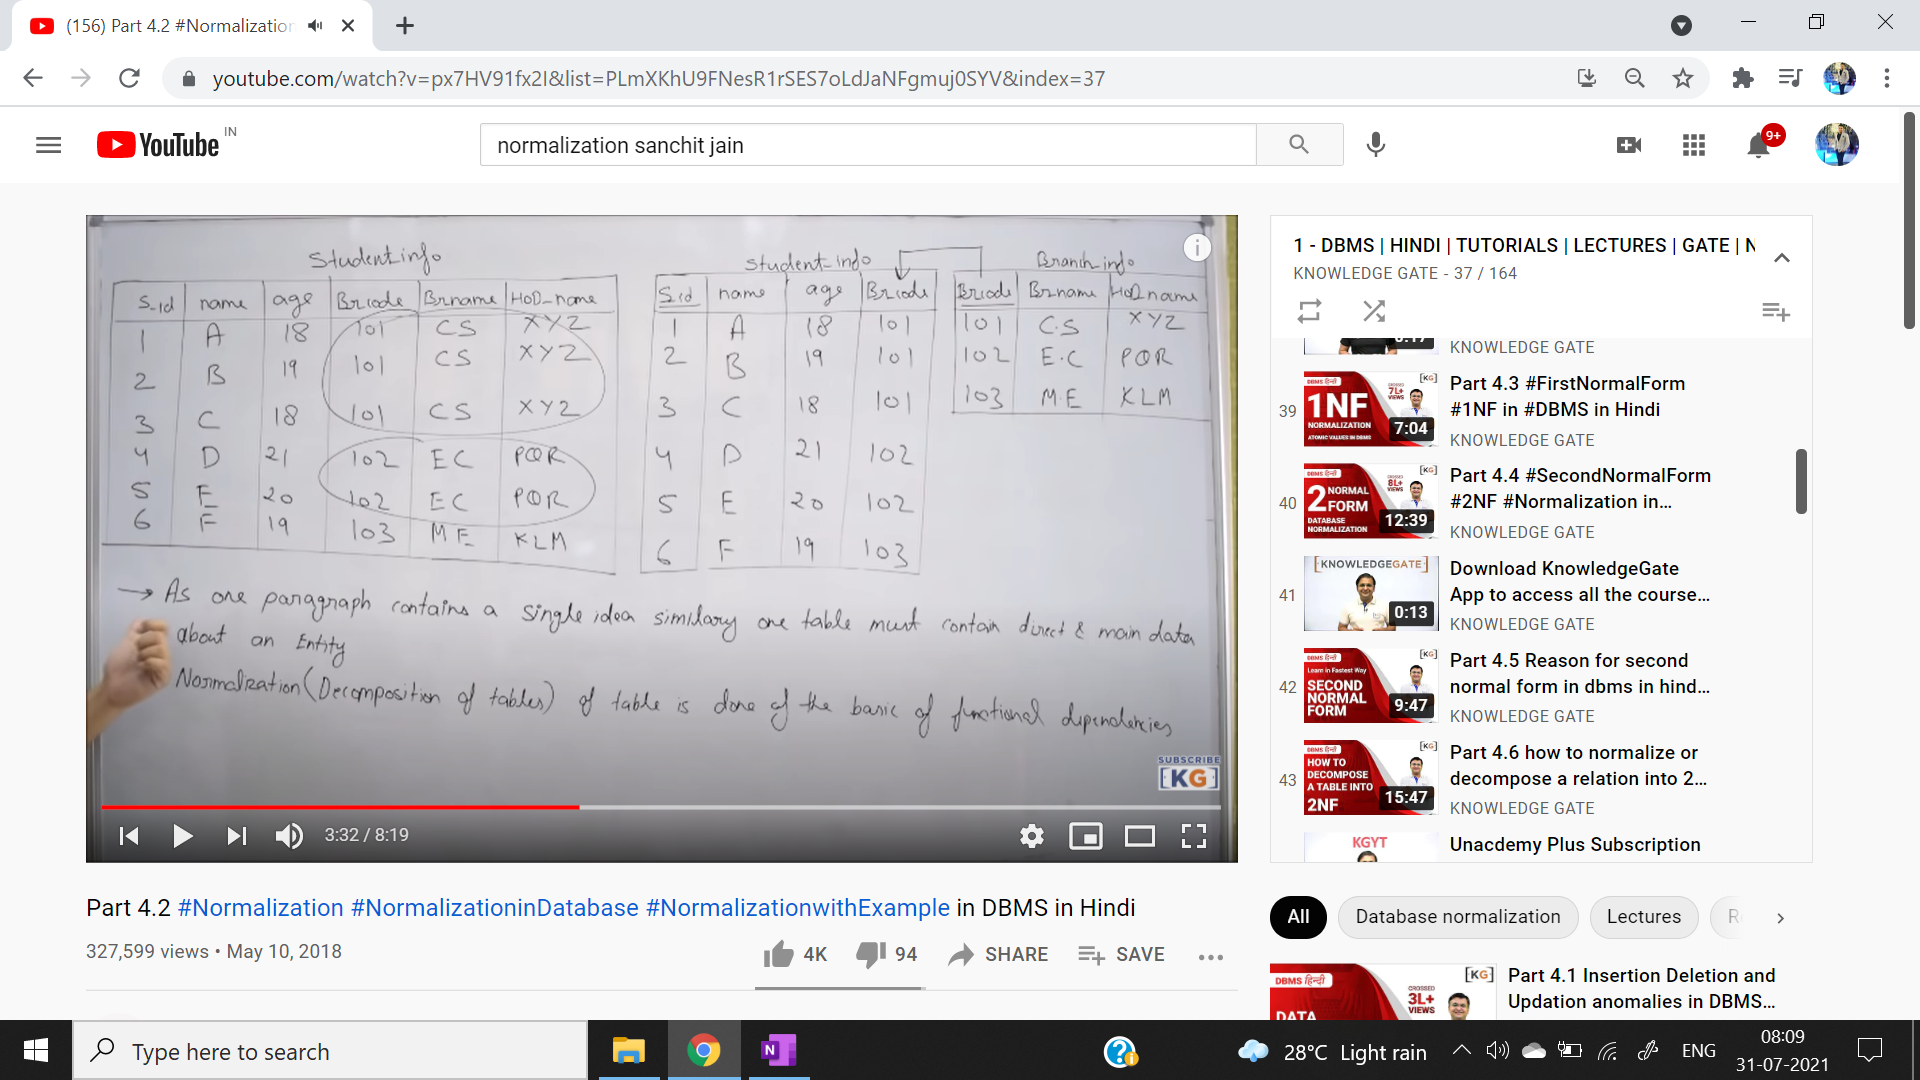 (156) Part 4.2 #Normalization
youtube.com/watch?v=px7HV91fx2I&list=PLmXKhU9FNesR1rSES7oLdJaNFgmuj0SYV&index=37
YouTube IN
normalization sanchit jain
9+
Student_info
S_id name age Brcode Brname HoD_name
1 A 18 101 CS XYZ
2 B 19 101 CS XYZ
3 C 18 101 CS XYZ
4 D 21 102 EC PQR
5 E 20 102 EC PQR
6 F 19 103 ME KLM
Student_info
S_id name age Brcode
1 A 18 101
2 B 19 101
3 C 18 101
4 D 21 102
5 E 20 102
6 F 19 103
Branch_info
Brcode Brname HoD name
101 C.S XYZ
102 E.C PQR
103 M.E KLM
→ As one paragraph contains a single idea similary one table must contain direct & main data
about an Entity
Normalization (Decomposition of tables) of table is done of the basic of functional dependencies
SUBSCRIBE
[KG]
3:32 / 8:19
Part 4.2 #Normalization #NormalizationinDatabase #NormalizationwithExample in DBMS in Hindi
327,599 views • May 10, 2018
4K 94 SHARE SAVE
1 - DBMS | HINDI | TUTORIALS | LECTURES | GATE | N
KNOWLEDGE GATE - 37 / 164
KNOWLEDGE GATE
39
DBMS हिन्दी
[KG]
CROSSED
7L+
VIEWS
1NF
NORMALIZATION
ATOMIC VALUES IN DBMS
7:04
Part 4.3 #FirstNormalForm
#1NF in #DBMS in Hindi
KNOWLEDGE GATE
40
DBMS हिन्दी
[KG]
CROSSED
8L+
VIEWS
2 NORMAL
FORM
DATABASE
NORMALIZATION
12:39
Part 4.4 #SecondNormalForm
#2NF #Normalization in...
KNOWLEDGE GATE
41
[KNOWLEDGEGATE]
0:13
Download KnowledgeGate
App to access all the course...
KNOWLEDGE GATE
42
DBMS हिन्दी
[KG]
Learn in Fastest Way
SECOND
NORMAL
FORM
9:47
Part 4.5 Reason for second
normal form in dbms in hind...
KNOWLEDGE GATE
43
DBMS हिन्दी
[KG]
HOW TO
DECOMPOSE
A TABLE INTO
2NF
15:47
Part 4.6 how to normalize or
decompose a relation into 2...
KNOWLEDGE GATE
KGYT
Unacdemy Plus Subscription
All Database normalization Lectures
DBMS हिन्दी
[KG]
CROSSED
3L+
VIEWS
DATA
Part 4.1 Insertion Deletion and
Updation anomalies in DBMS...
Type here to search
N
28°C Light rain
ENG
08:09
31-07-2021